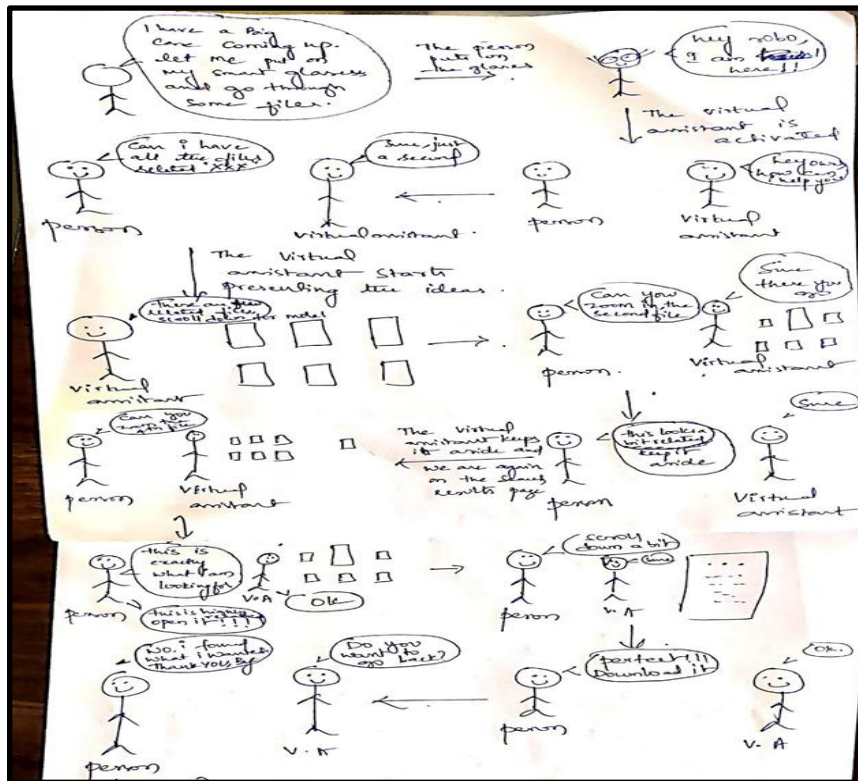 I have a big
case coming up.
let me put on
my smart glasses
and go through
some files.
The person
puts on
the glasses
hey robo,
I am
here!!
The virtual
assistant is
activated
hey
how can
I help you
person
virtual
assistant
Can i have
all the files
related "XXX"
person
Sure, just
a second
virtual assistant.
The virtual
assistant starts
presenting the ideas.
There are
related files,
scroll down for more
virtual
assistant
Can you
zoom in the
second file
person.
Sure
there you
go
Virtual
assistant
this looks a
bit related
keep it
aside
person
Sure
Virtual
assistant
The virtual
assistant keeps
it aside and
we are again
on the
results page
Can you
zoom
file
person
Virtual
assistant
this is
exactly
what I am
looking for
person
this is
open it!!!!
V.A
Ok
scroll
down a bit
person
Sure
V.A
perfect!!!
Download it
person
Ok.
V.A
Do you
want to
go back?
V.A
No, i found
what i wanted
Thank you, Bye
person